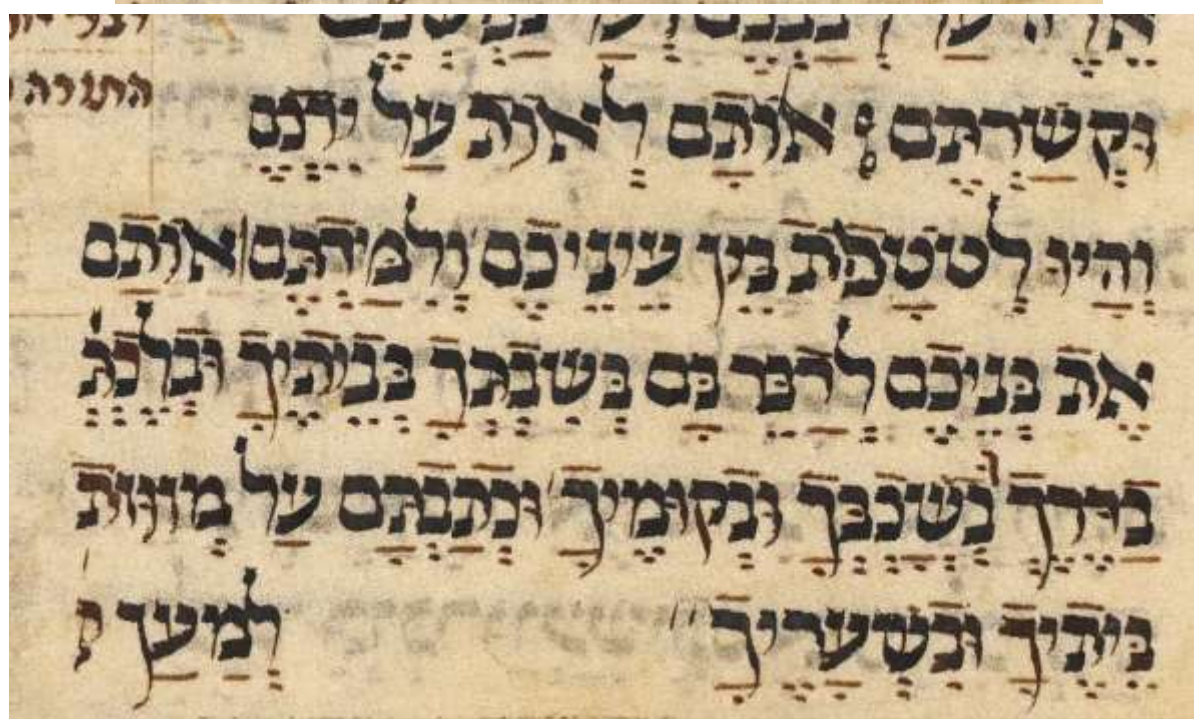 וּקְשַׁרְתֶּם אוֹתָם לְאוֹת עַל יֶדְכֶם
וְהָיוּ לְטֹטָפֹת בֵּין עֵינֵיכֶם וְלִמַּדְתֶּם אוֹתָם
אֶת בְּנֵיכֶם לְדַבֵּר בָּם בְּשִׁבְתְּךָ בְּבֵיתֶיךָ וּבְלֶכְתְּ
בַדֶּרֶךְ בְּשָׁכְבְּךָ וּבְקוּמֶיךָ וּכְתַבְתָּם עַל מְזוּזוֹת
בֵּיתֶיךָ וּבִשְׁעָרֶיךָ לְמַעַן
התורה